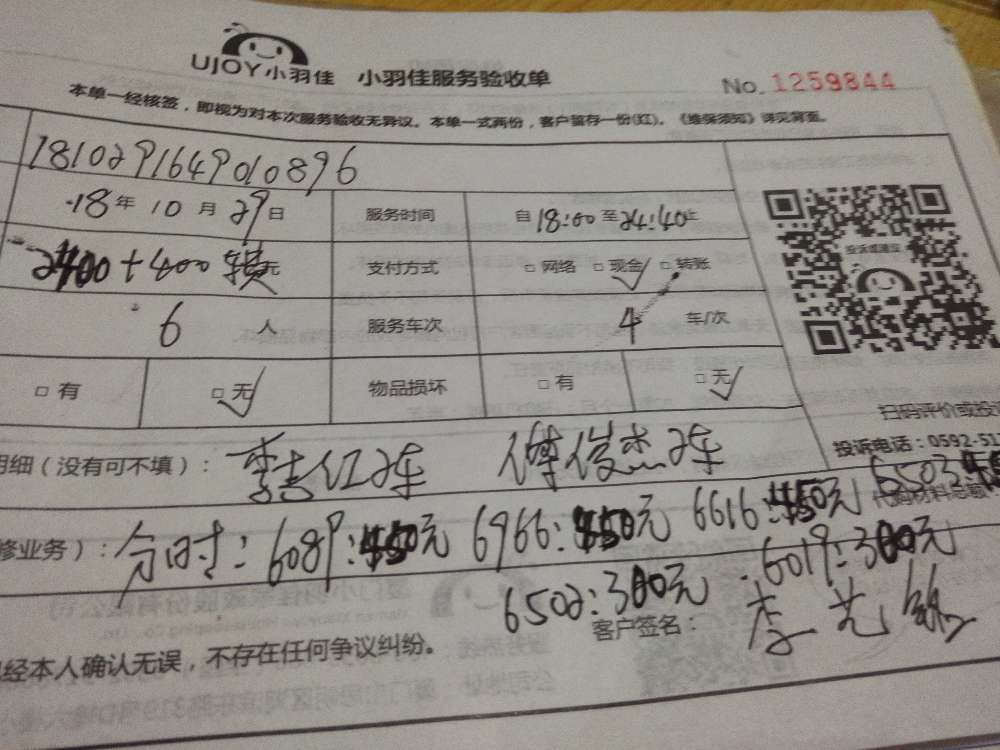 UJOY小羽佳 小羽佳服务验收单
No. 1259844
本单一经核签，即视为对本次服务验收无异议。本单一式两份，客户留存一份(红)。《维保须知》详见背面。
1810291649010896
18年 10月 29日 服务时间 自18:00至24:40止
+400 元 支付方式 □网络 □现金✓ □转账
6 人 服务车次 4 车/次
□有 □无✓ 物品损坏 □有 □无✓
投诉或建议
扫码评价或投
投诉电话：0592-51
明细（没有可不填）： 李吉红2车 傅俊杰2车
代购材料总额
修业务）： 分时： 6089:450元 6966:450元 6616:450元 6503:
6502:300元 6019:300元
客户签名：
经本人确认无误，不存在任何争议纠纷。